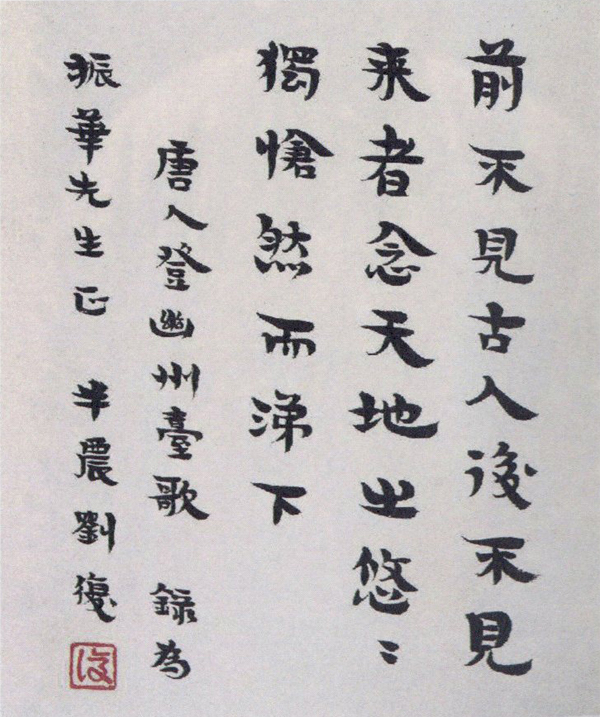 前不見古人後不見
来者念天地之悠〻
獨愴然而涕下
唐人登幽州臺歌 錄為
振華先生正 半農劉復
復